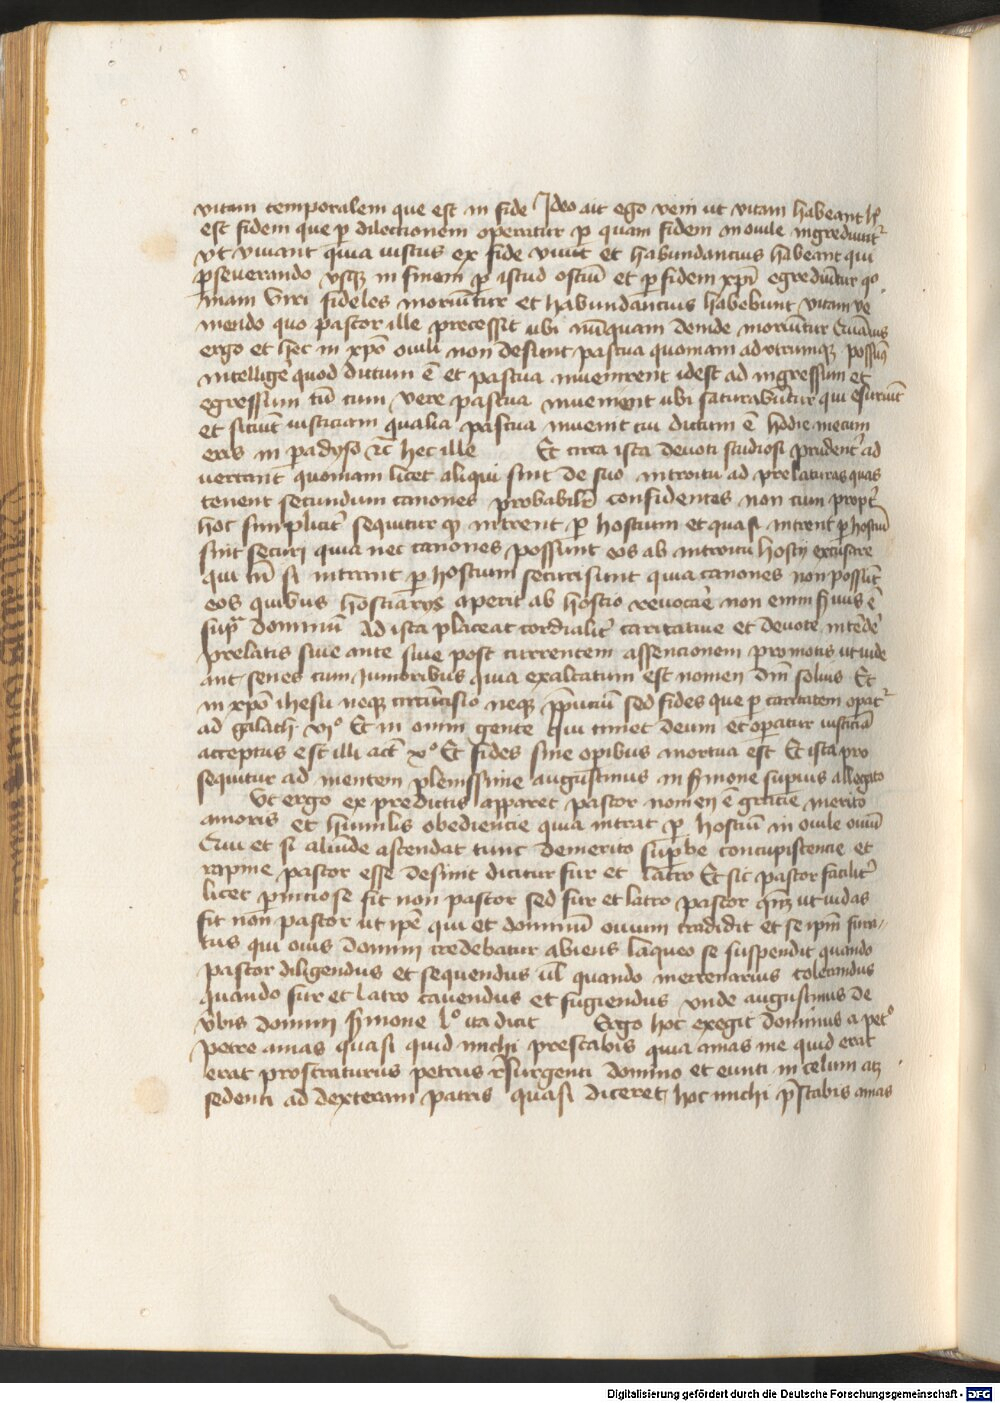 vitam temporalem que est in fide Ideo ait ego veni ut vitam habeant h̄
est fidem que ꝑ dilectionem operatur ꝑ quam fidem in ouile ingrediuntr̄
vt viuant quia iustus ex fide viuit et habundancius habeant qui
ꝑseuerando vsqꝫ in finem ꝑ istud ostiū et ꝑ fidem xp̄i egrediūtur qo
niam viri fideles moriūtur et habundancius habebunt vitam ve
niendo quo pastor ille precessit ubi nūquam deinde moriūtur Quāuis
ergo et hec in xp̄o ouili non desunt pascua quoniam ad vtrumqꝫ possuꝰ
intellige quod dictum ē et pascua inuenirent idest ad ingressum et
egressum tn̄ tum vere pascua inuenient ubi saturabūtur qui esuriūt
et siciūt iusticiam qualia pascua inuenit cui dictum ē hodie mecum
eris in ꝑadyso ꝛc̄ hec ille Et circa ista deuoti studiosi prudentr̄ ad
vertant quoniam licet aliqui sint de suo introitu ad prelaturas quas
tenent secundum canones probabiltr̄ confidentes non tum proptr̄
hoc simplicitr̄ sequitur ꝙ intrent ꝑ hostium et quasi intrent ꝑ hostiū
sint securi quia nec canones possunt eos ab introitu hostij excusare
qui tn̄ si intrant ꝑ hostium securi sunt quia canones non possūt
eos quibus hostiarius aperit ab hostio reuocare non enim s̄uus ē
supᵃ dominū Ad ista placeat cordialitr̄ caritatiue et deuote intēdē
prelatis siue ante siue post currentem assencionem promotis ut vide
ant senes cum Junioribus quia exaltatum est nomen dn̄i solius Et
in xp̄o ihesu neqꝫ circūcisio neqꝫ p̄puciū sed fides que ꝑ caritatem opatr̄
ad galath vjº Et in omni gente qui timet deum et oꝑatur iusticiā
acceptus est illi act̄ xº Et fides sine oꝑibus mortua est Et ista pro
sequitur ad mentem plenissime augustinus in s̄mone suꝑius allegato
Vt ergo ex predictis apparet pastor nomen ē gracie merito
amoris et humilis obediencie quia intrat ꝑ hostiū in ouile ouiū
Qui et si aliūde ascendat tunc demerito suꝑbe concupiscencie et
rapine pastor esse desinit dicitur fur et latro Et sic pastor facilitr̄
licet ꝑniciose fit non pastor sed fur et latro pastor qn̄qꝫ ut iudas
fit non pastor ut ip̄e qui et dominū ouium tradidit et se ip̄m fura
tus qui ouis domini credebatur abiens laqueo se suspendit quando
pastor diligendus et sequendus ul̄ quando mercenarius tolerandus
quando fur et latro cauendus et fugiendus vnde augustinus de
v̄bis domini s̄mone lº ita dicit Ergo hoc exegit dominus a petº
petre amas quasi quid michi prestabis quia amas me quid erat
erat prostraturus petrus r̄surgenti domino et eunti in celum atqꝫ
sedenti ad dexteram patris quasi diceret hoc michi p̄stabis amas
Digitalisierung gefördert durch die Deutsche Forschungsgemeinschaft - DFG